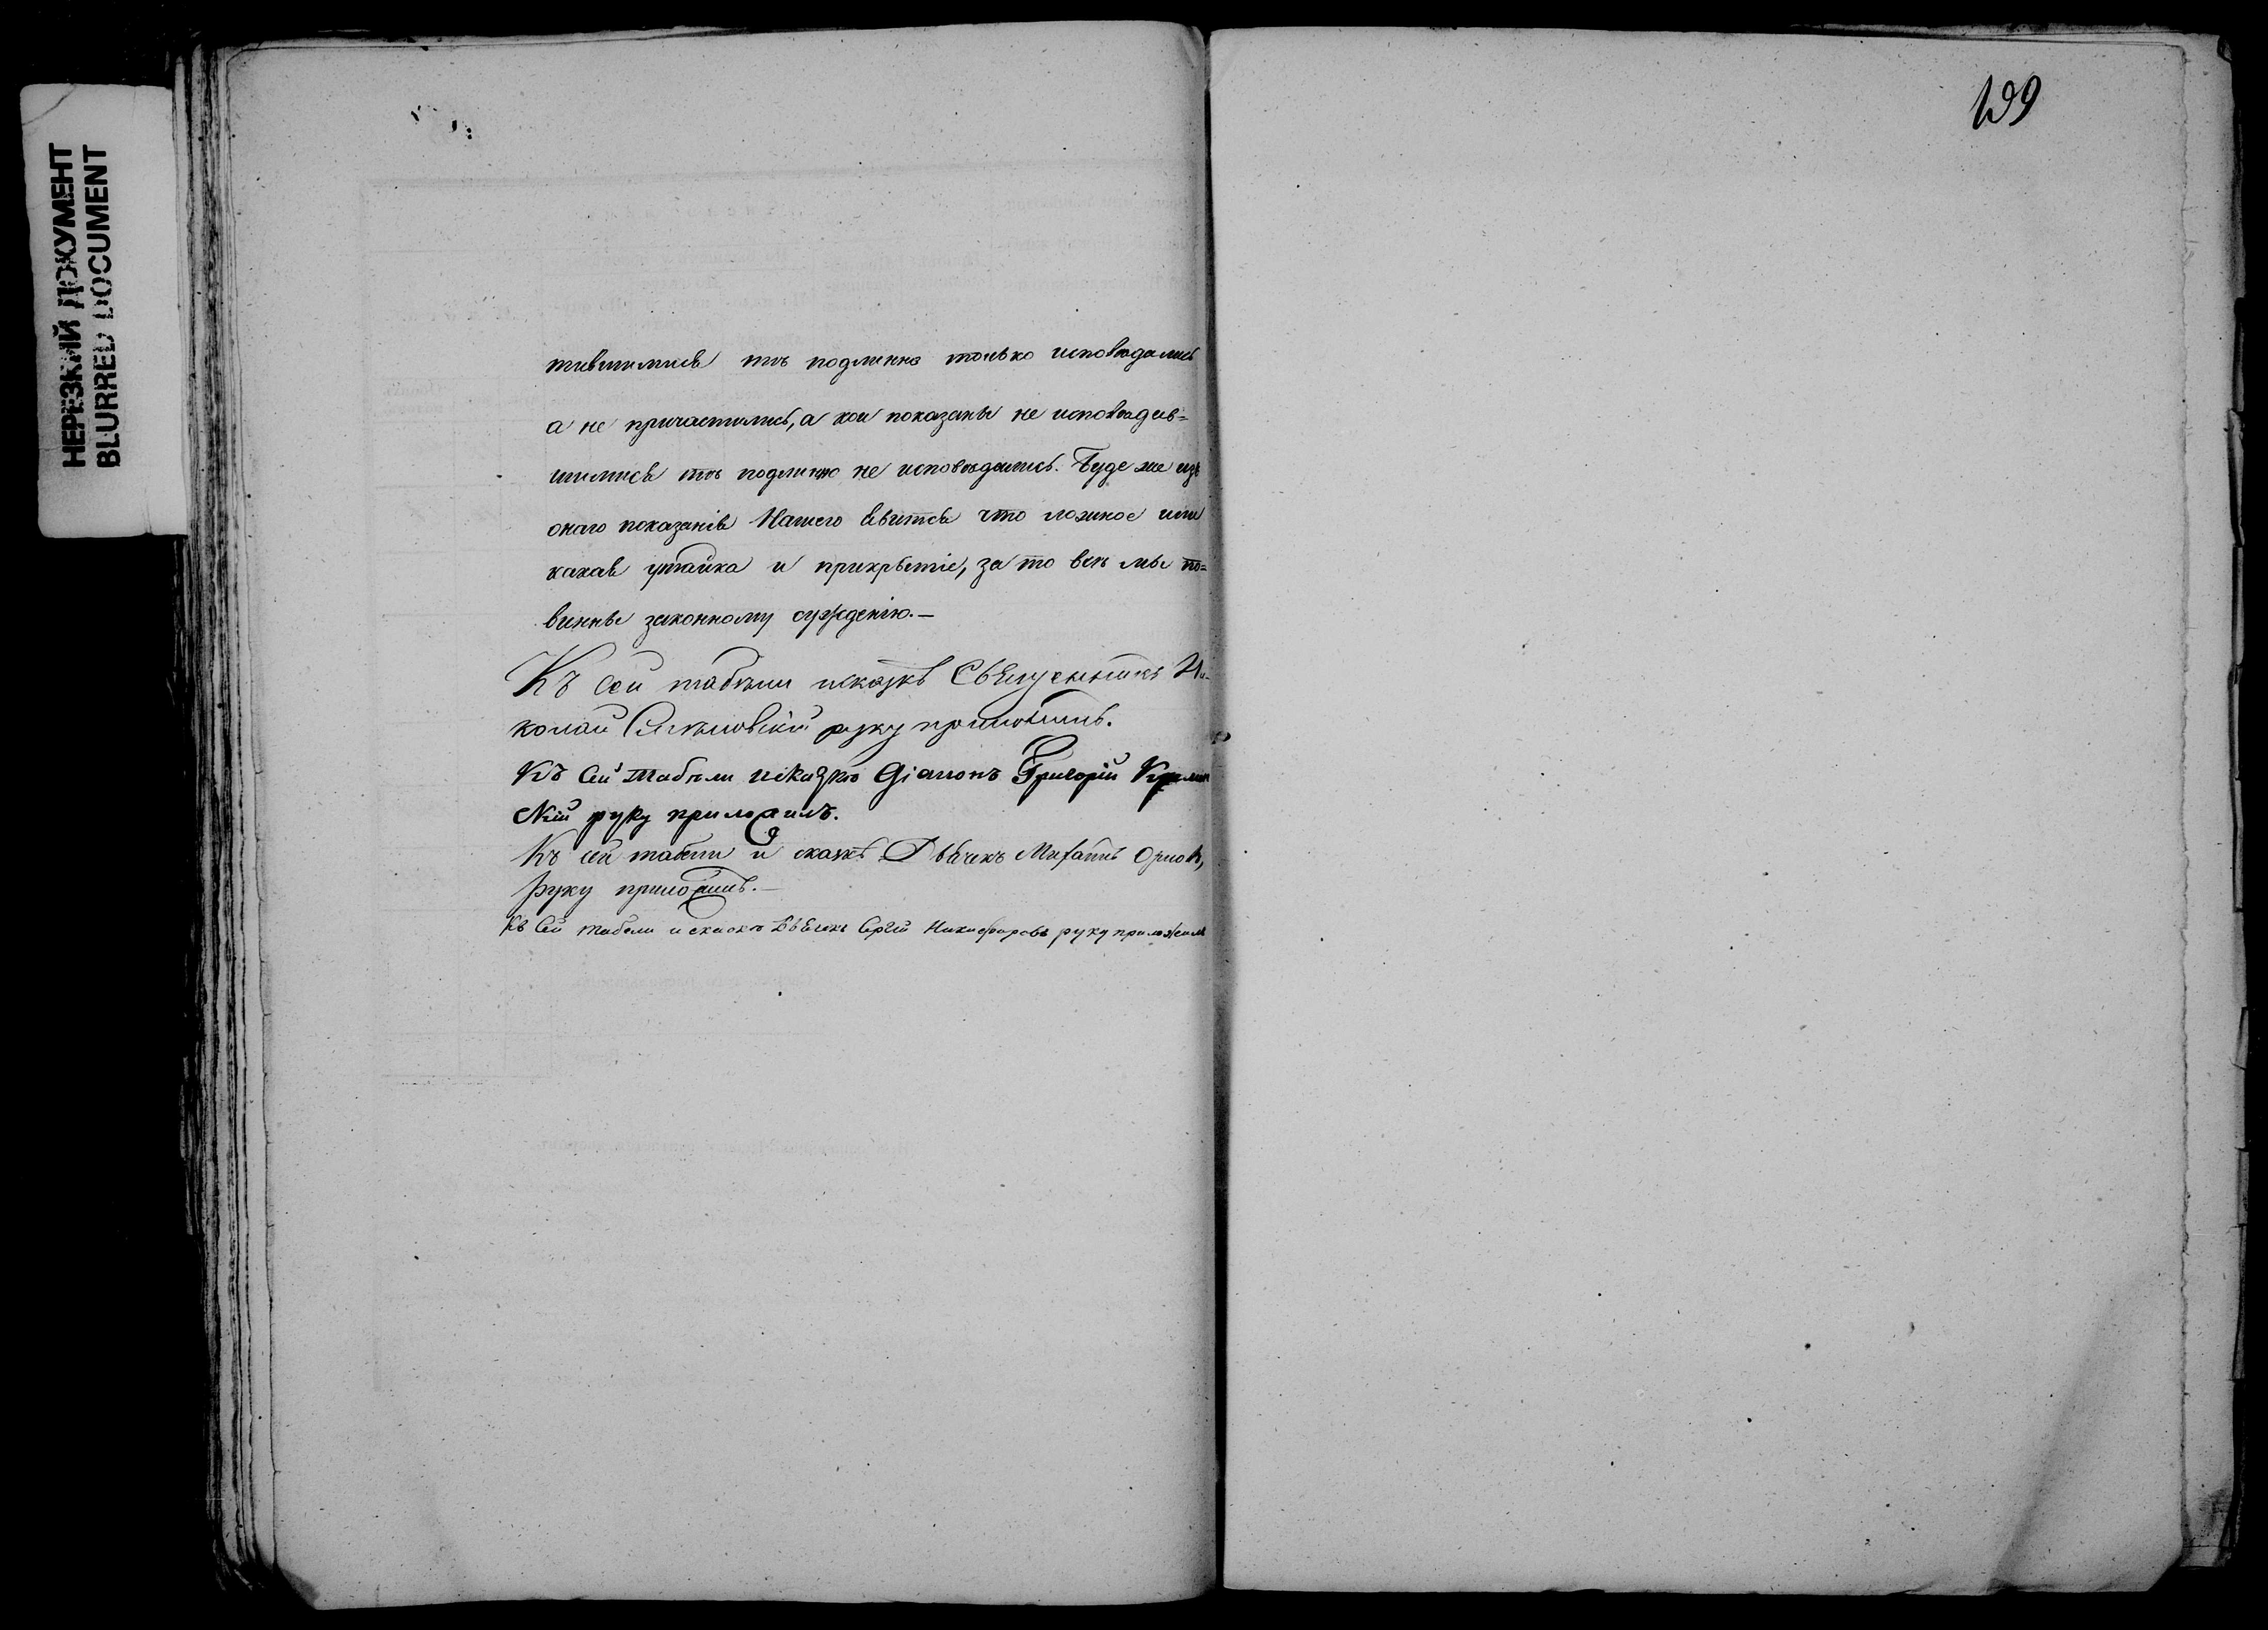 НЕРЕЗКИЙ ДОКУМЕНТ
BLURRED DOCUMENT
199
тившимися тѣ подлинно только исповѣдались
а не причастились, а кои показаны не исповѣдав=
шимися тѣ подлинно не исповѣдались. Буде же изъ
онаго показанія Нашего явится что ложное или
какая утайка и прикрытіе, за то всѣ мы по=
винны законному сужденію.—
Къ сей табѣли искаскѣ Священникъ Ни-
колай руку приложилъ.
Къ сей табѣли искаскѣ Діаконъ Григорій
скій руку приложилъ.
Къ сей табели и сказкѣ Дьячекъ Михаилъ Орловъ,
руку приложилъ.—
Къ сей табели и скаскѣ Дьячекъ Сергій Никифоровъ руку приложилъ